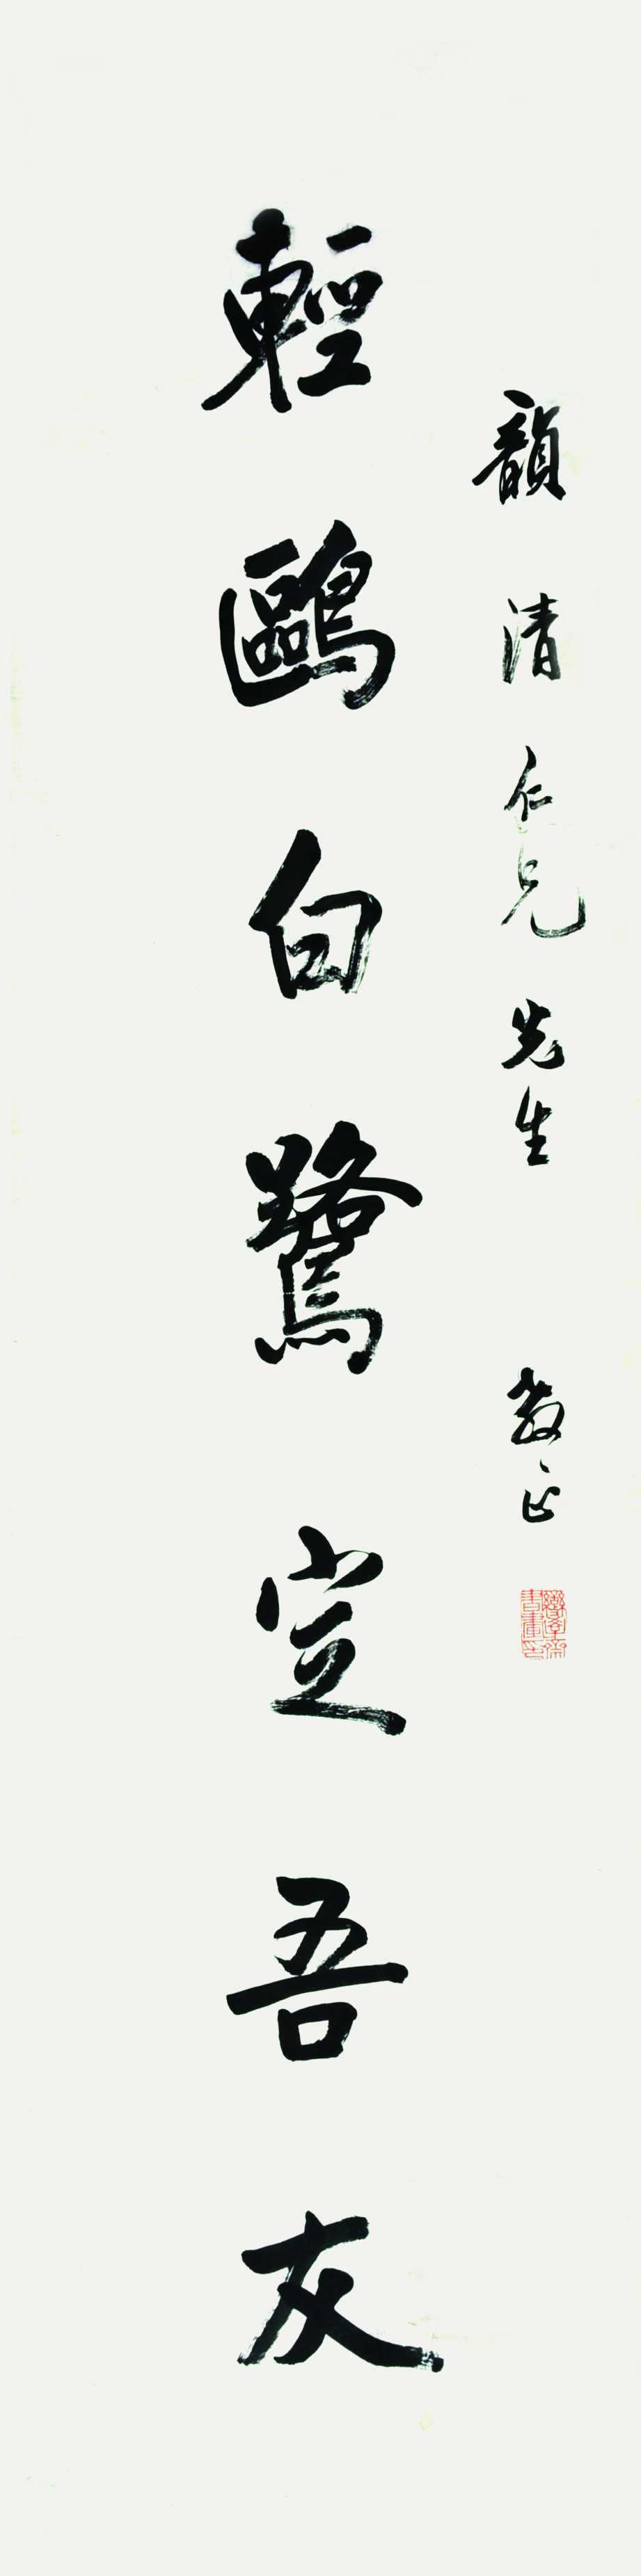 韻清仁兄先生教正
輕鷗白鷺定吾友